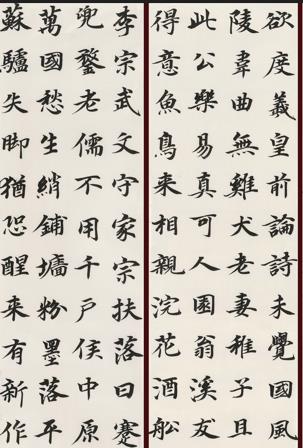 欲度義皇前論詩未覺國風
陵韋曲無雞犬老妻稚子且
此公樂易真可人園翁溪友
得意魚鳥來相親浣花酒船
李宗武文守家宗扶落日蹇
兜鍪老儒不用千戶侯中原
萬國愁生綃鋪墻粉墨落平
蘇驢失脚猶恐醒來有新作